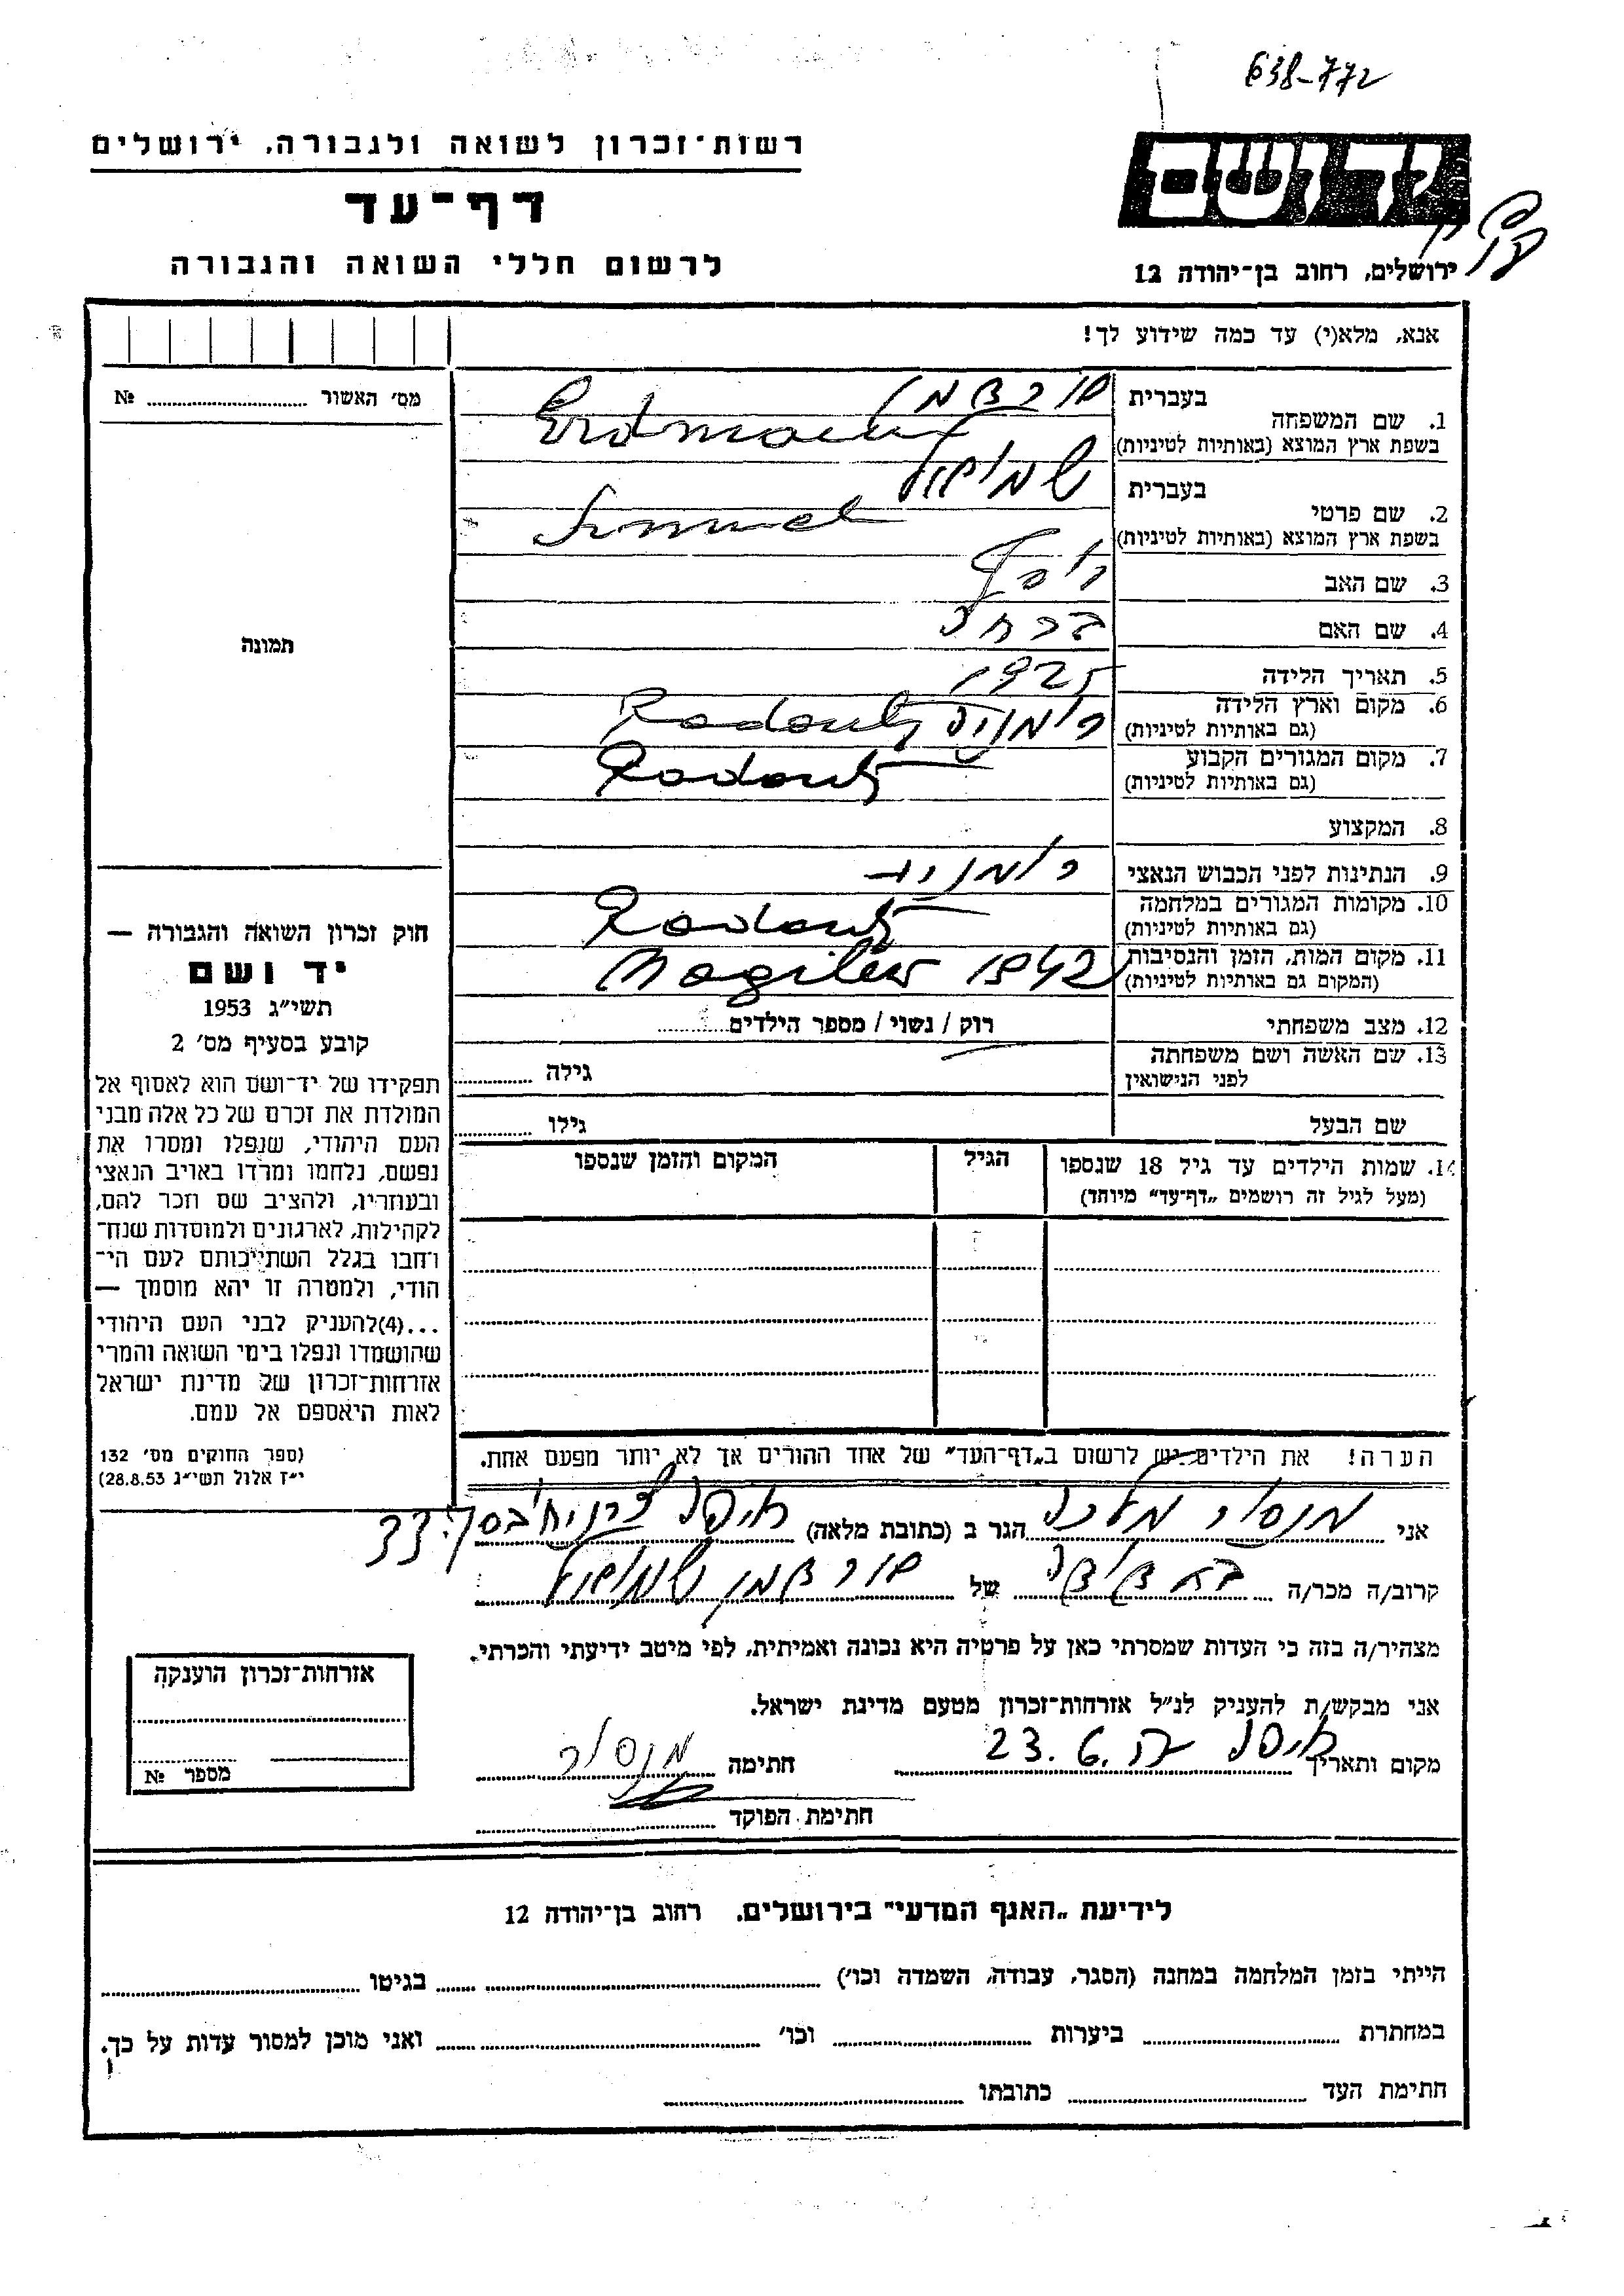 638-772
רשות־זכרון לשואה ולגבורה, ירושלים
דף־עד
לרשום חללי השואה והגבורה
יד ושם
ירושלים, רחוב בן־יהודה 12
אנא, מלא(י) עד כמה שידוע לך!
מס׳ האשור № 
1. שם המשפחה
בעברית
בשפת ארץ המוצא (באותיות לטיניות)
Erdmann
2. שם פרטי
בעברית שמואל
בשפת ארץ המוצא (באותיות לטיניות)
3. שם האב יוסף
4. שם האם
5. תאריך הלידה 1925
6. מקום וארץ הלידה
(גם באותיות לטיניות)
רומניה Radoutz
7. מקום המגורים הקבוע
(גם באותיות לטיניות)
Radoutz
8. המקצוע
9. הנתינות לפני הכבוש הנאצי רומניה
10. מקומות המגורים במלחמה
(גם באותיות לטיניות)
Radoutz
11. מקום המות, הזמן והנסיבות
(המקום גם באותיות לטיניות)
Mogilew 1942
12. מצב משפחתי רוק / נשוי / מספר הילדים
13. שם האשה ושם משפחתה
לפני הנישואין
גילה
שם הבעל גילו
14. שמות הילדים עד גיל 18 שנספו
(מעל לגיל זה רושמים „דף־עד” מיוחד)
הגיל
המקום והזמן שנספו
תמונה
חוק זכרון השואה והגבורה —
יד ושם
תשי״ג 1953
קובע בסעיף מס׳ 2
תפקידו של יד־ושם הוא לאסוף אל
המולדת את זכרם של כל אלה מבני
העם היהודי, שנפלו ומסרו את
נפשם, נלחמו ומרדו באויב הנאצי
ובעוזריו, ולהציב שם וזכר להם,
לקהילות, לארגונים ולמוסדות שנח־
רחבו בגלל השתייכותם לעם הי־
הודי, ולמטרה זו יהא מוסמך —
...(4)להעניק לבני העם היהודי
שהושמדו ונפלו בימי השואה והמרי
אזרחות־זכרון של מדינת ישראל
לאות היאספם אל עמם.
(ספר החוקים מס׳ 132
י״ז אלול תשי״ג 28.8.53)
הערה! את הילדים יש לרשום ב„דף־העד” של אחד ההורים אך לא יותר מפעם אחת.
אני הגר ב (כתובת מלאה) חיפה
קרוב/ה מכר/ה של שמואל
מצהיר/ה בזה כי העדות שמסרתי כאן על פרטיה היא נכונה ואמיתית, לפי מיטב ידיעתי והכרתי.
אני מבקש/ת להעניק לנ״ל אזרחות־זכרון מטעם מדינת ישראל.
מקום ותאריך חיפה 23.6. חתימה
חתימת הפוקד
אזרחות־זכרון הוענקה
מספר №
לידיעת „האגף המדעי” בירושלים, רחוב בן־יהודה 12
הייתי בזמן המלחמה במחנה (הסגר, עבודה, השמדה וכו׳) בגיטו
במחתרת ביערות וכו׳ ואני מוכן למסור עדות על כך.
חתימת העד כתובתו